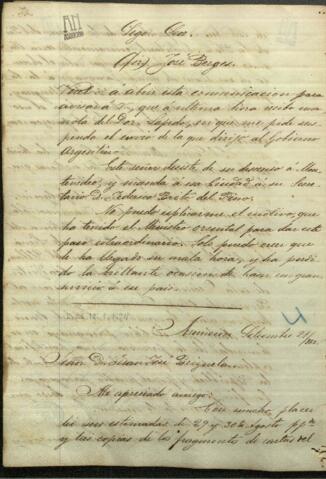 AN
ASUNCION
Sigo. Chor.
(for) José Berges.
Vuelvo a abrir esta comunicacion para
avisar á V., que á última hora recibo una
nota del Dor. Lapido, en que me pide sus-
penda el envio de la que dirijo al Gobierno
Argentino.
Este señor desiste de su descenso á Mon-
tevideo, y manda a su Secre-
tario D. Federico Brito del Pino.
No puedo esplicarme el motivo, que
ha tenido el Ministro oriental para dar este
paso extraordinario. Solo puedo creer que
le ha llegado su mala hora, y ha perdi-
do la brillante ocasion de hacer un gran
servicio á su pais.
Asuncion Setiembre 21/
Señor D. José Brizuela
Mi apreciado amigo:
Con mucho placer
recibí sus estimadas de 29 y 30 de Agosto pp.
y las copias de los fragmentos de cartas del